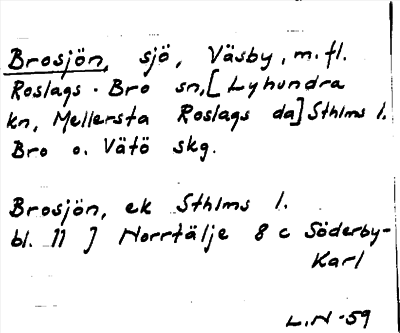 Brosjön, sjö, Väsby, m.fl.
Roslags-Bro sn, [Lyhundra
kn, Mellersta Roslags da] Sthlms l.
Bro o. Vätö skg.
Brosjön, ek Sthlms l.
bl. 11 J Norrtälje 8 c Söderby-
Karl
L.N-59